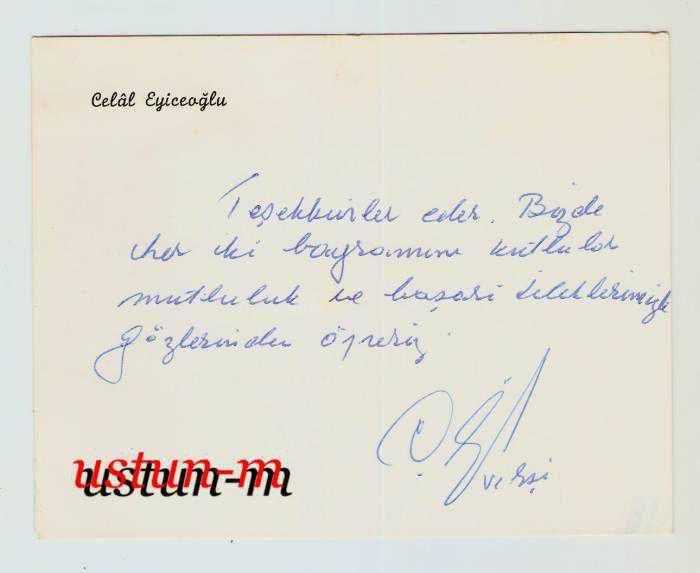 Celâl Eyiceoğlu
Teşekkürler eder. Bizde
her iki bayramını kutlular
mutluluk ve başarı dileklerimizle
gözlerinden öperiz.
ve eşi
ustun-m